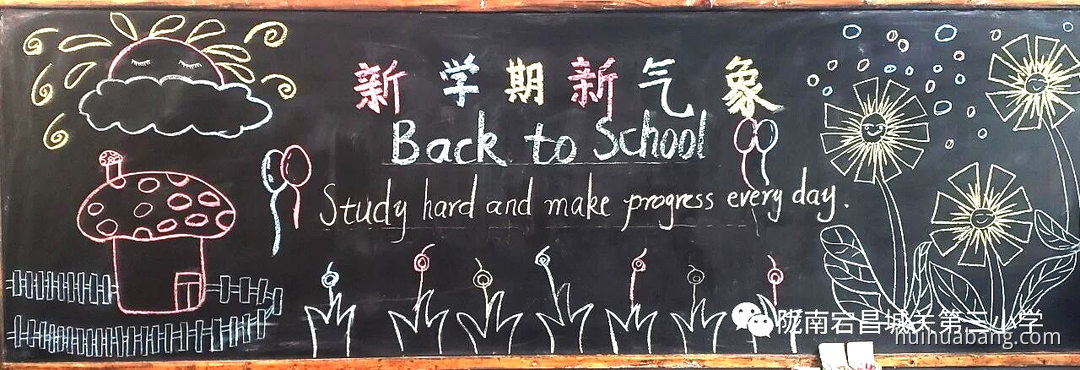 新学期新气象
Back to School
Study hard and make progress every day.
陇南宕昌城关第三小学
huihuabang.com